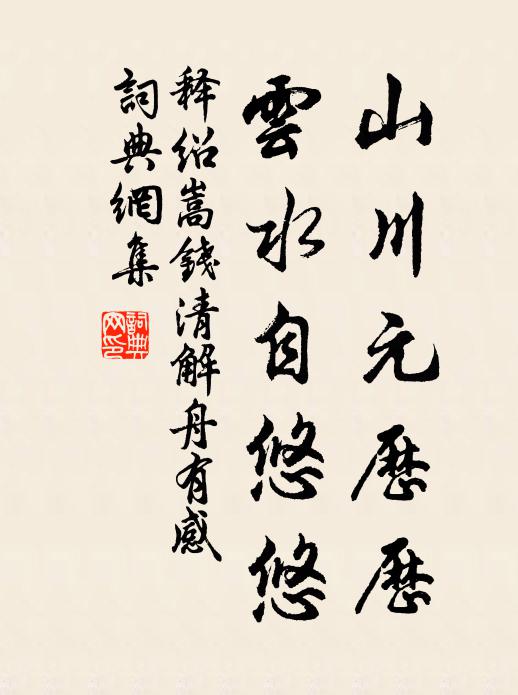 山川元歷歷
雲水自悠悠
释绍嵩錢清解舟有感
詞典網集
詞典网印